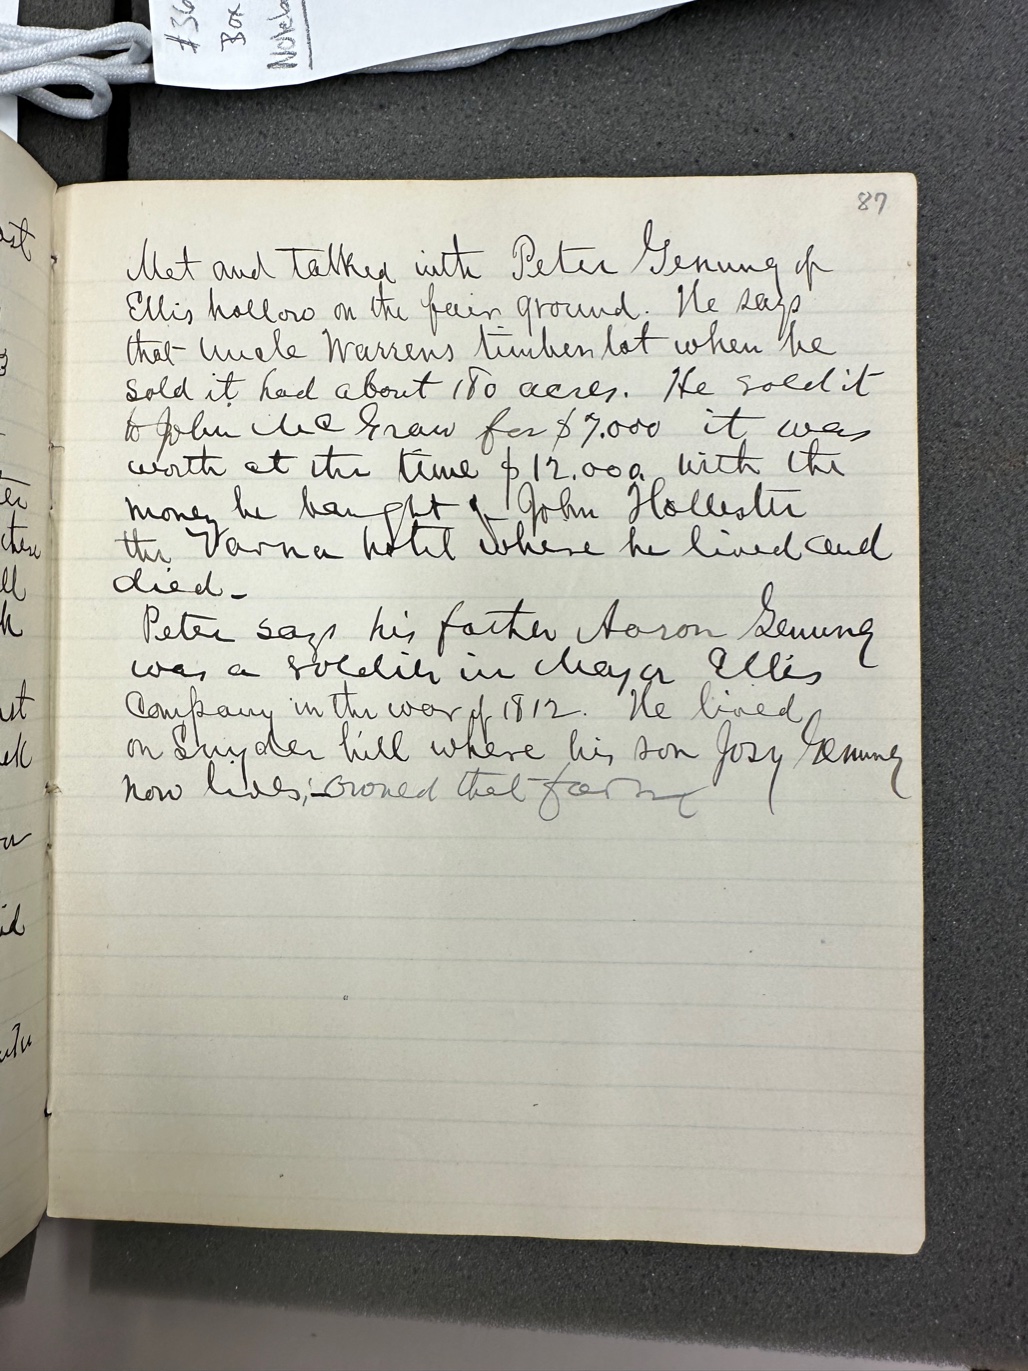 #36
Box
Noteb
87
Met and talked with Peter Genung of
Ellis hollow on the fair ground. He says
that Uncle Warrens timber lot when he
sold it had about 180 acres. He sold it
to John McGraw for $7.000 it was
worth at the time $12.000 with the
money he baught of John Hollester
the Varna hotel where he lived and
died -
Peter says his father Aaron Genung
was a soldier in Major Ellis
Company in the war of 1812. He lived
on Snyder hill where his son Josy Genung
now lives, - owned that farm